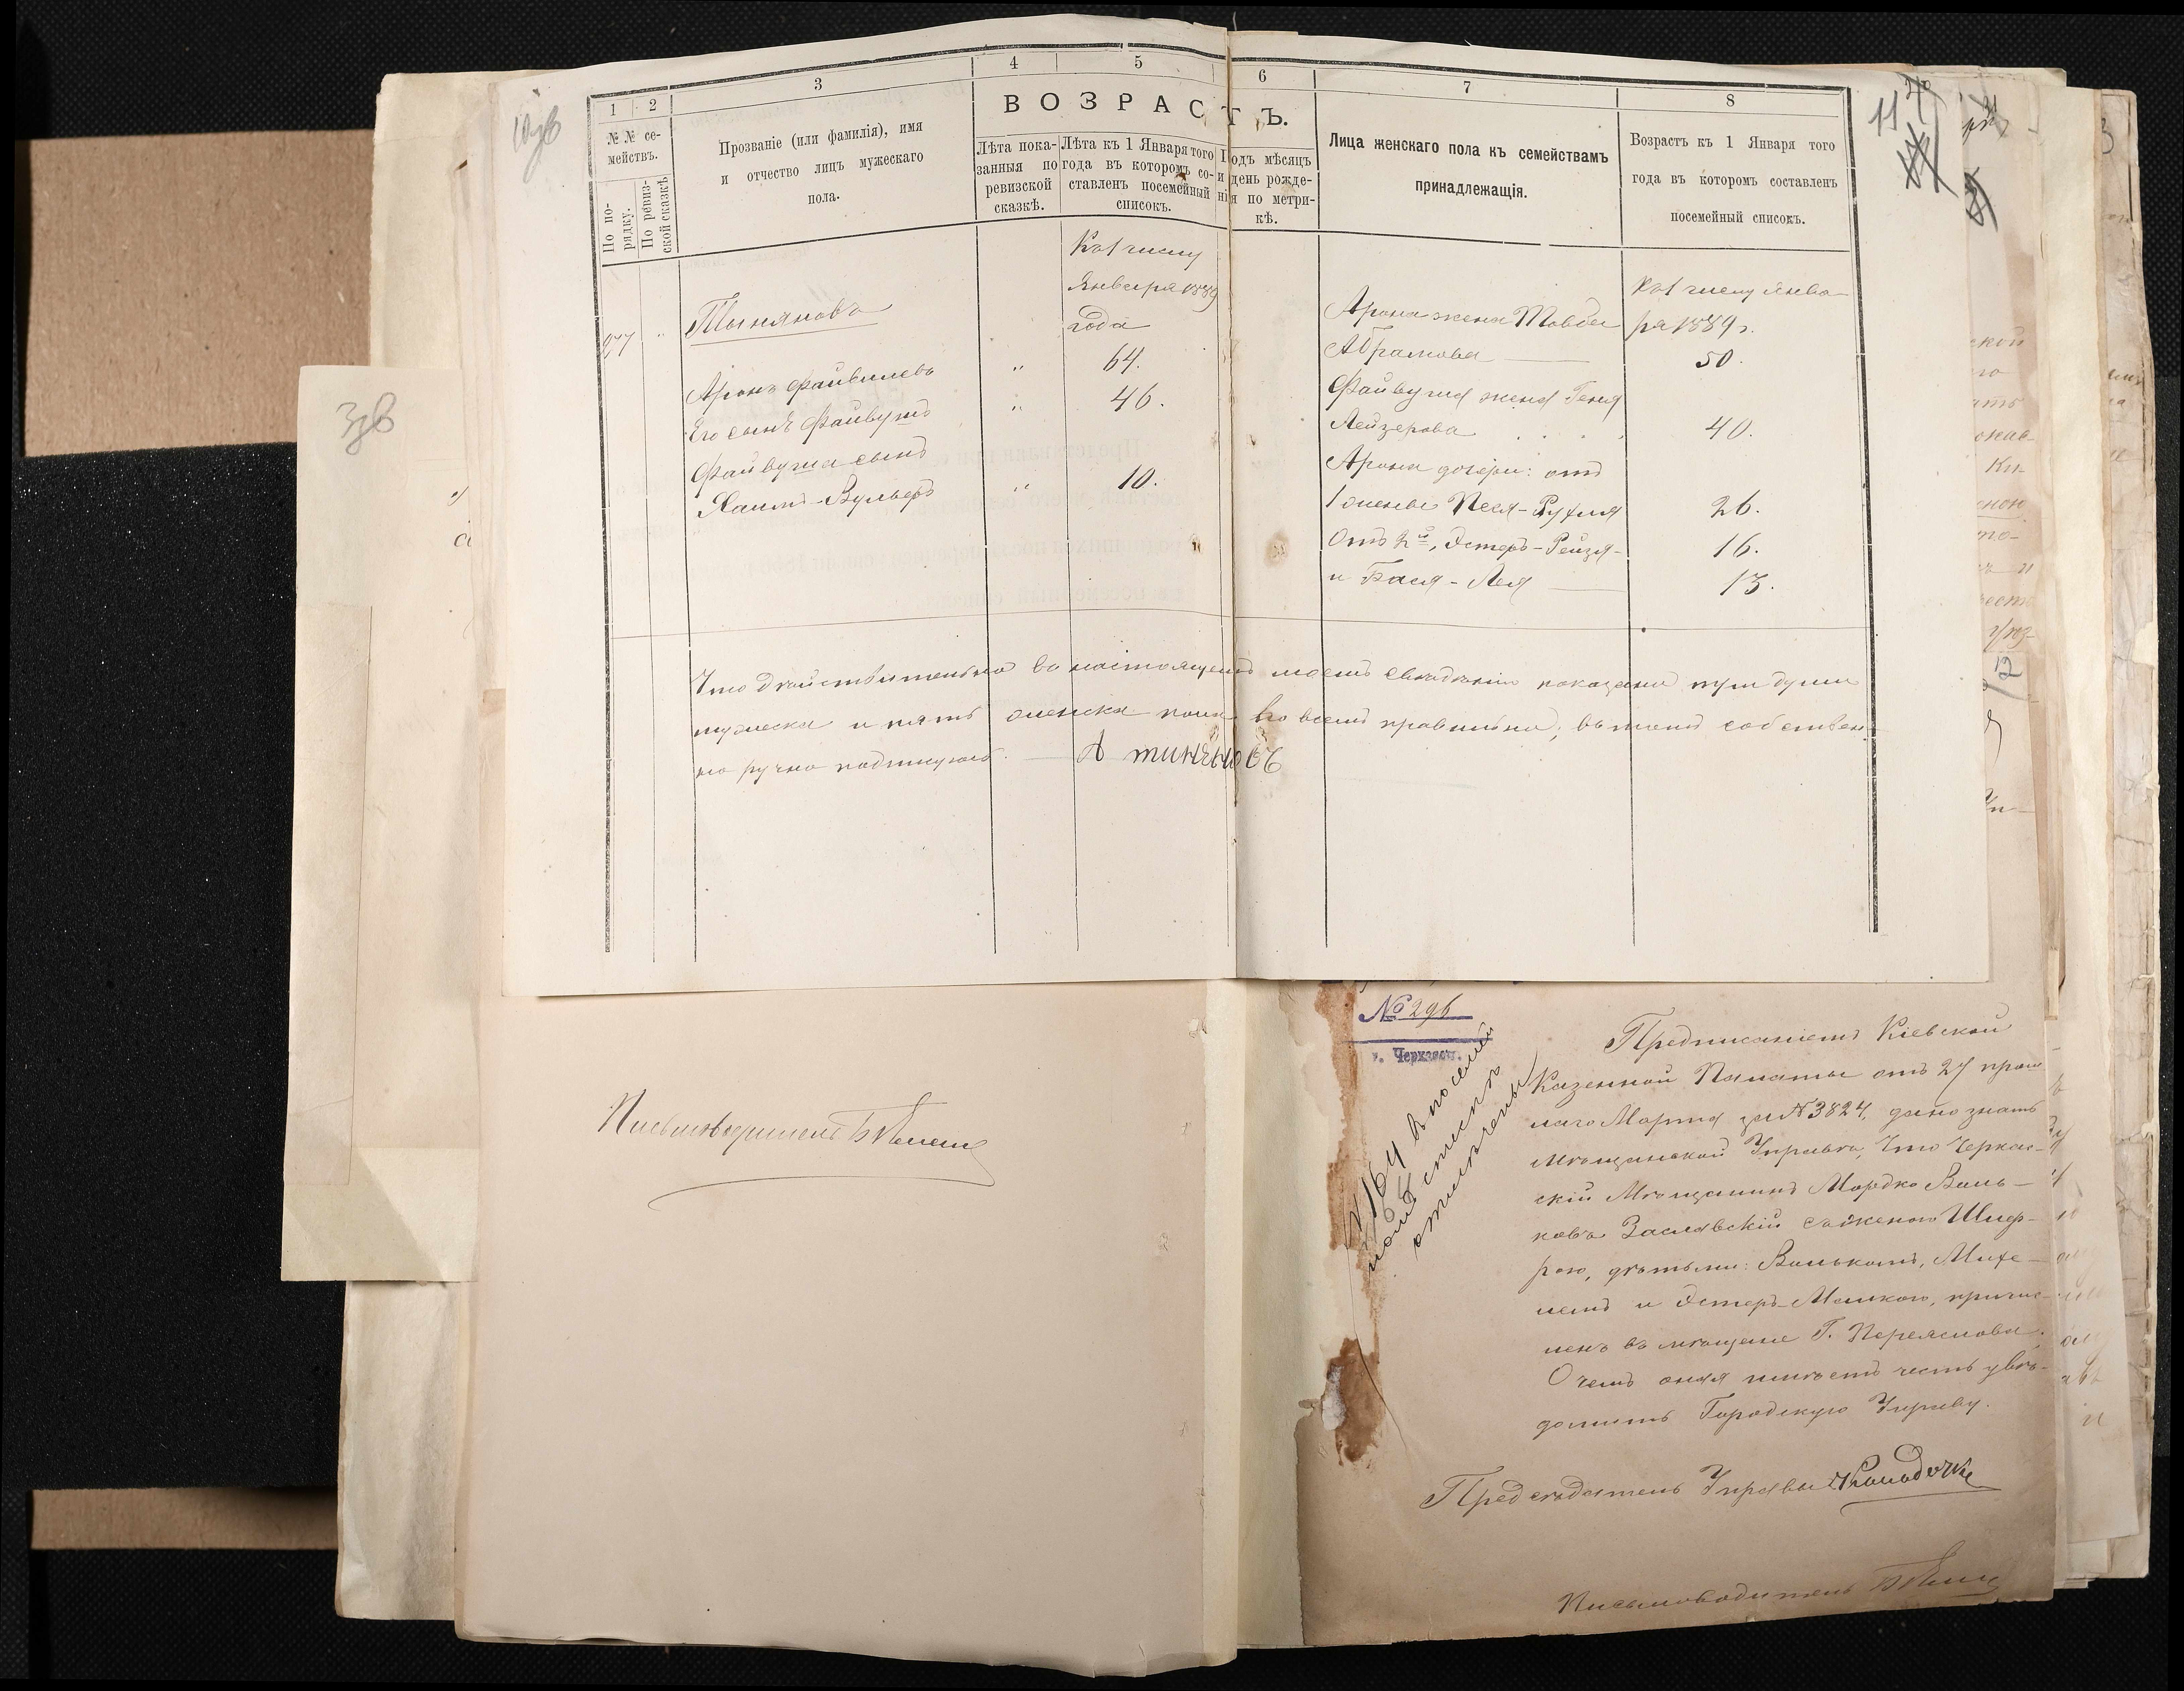 10 зв
11
1
2
3
4
5
6
7
8
№ № се-
мействъ.
По по-
рядку.
По ревиз-
ской сказкѣ
Прозваніе (или фамилія), имя
и отчество лицъ мужескаго
пола.
ВОЗРАСТЪ.
Лѣта пока-
занныя по
ревизской
сказкѣ.
Лѣта къ 1 Января того
года въ которомъ со-
ставленъ посемейный
списокъ.
Годъ мѣсяцъ
и день рожде-
нія по метри-
кѣ.
Лица женскаго пола къ семействамъ
принадлежащія.
Возрастъ къ 1 Января того
года въ которомъ составленъ
посемейный списокъ.
277 "
Тыняновъ
Къ 1 числу
Января 1889
года
Аронъ Файвилевъ " 64.
Его сынъ Файвушъ " 46.
Файвуша сынъ
Хаимъ-Вульфъ " 10.
Къ 1 числу Янва-
ря 1889 г.
Арона жена Товба
Абрамова 50.
Файвуша жена Геня
Лейзерова 40.
Арона дочери: отъ
1 жены Песя-Рухля 26.
Отъ 2й, Эстеръ-Рейзя- 16.
и Бася-Лея 13.
Что дѣйствительно въ настоящемъ моемъ свѣдѣніи показаны три души
мужеска и пять женска пола во всемъ правильно; въ томъ собствен-
но ручно подпишусь. А тинѣновъ
3 зв
Письмоводитель
№ 296
г. Черкассы.
№ 164 въ посемей
номъ спискѣ
отмѣчены
Предписаніемъ Кіевской
Казенной Палаты отъ 27 прош
лаго Марта за № 3824, дано знать
Мѣщанской Управѣ, что Черкас-
скій Мѣщанинъ Мордко Валь-
ковъ Заславскій съ женою Шиф-
рою, дѣтьми: Вольколъ, Михе-
лемъ и Эстеръ-Малкою, причис-
ленъ въ мѣщане Г. Переяслова.
О чемъ оная имѣетъ честь увѣ-
домить Городскую Управу.
Предсѣдатель Управы Колодочка
Письмоводитель
12